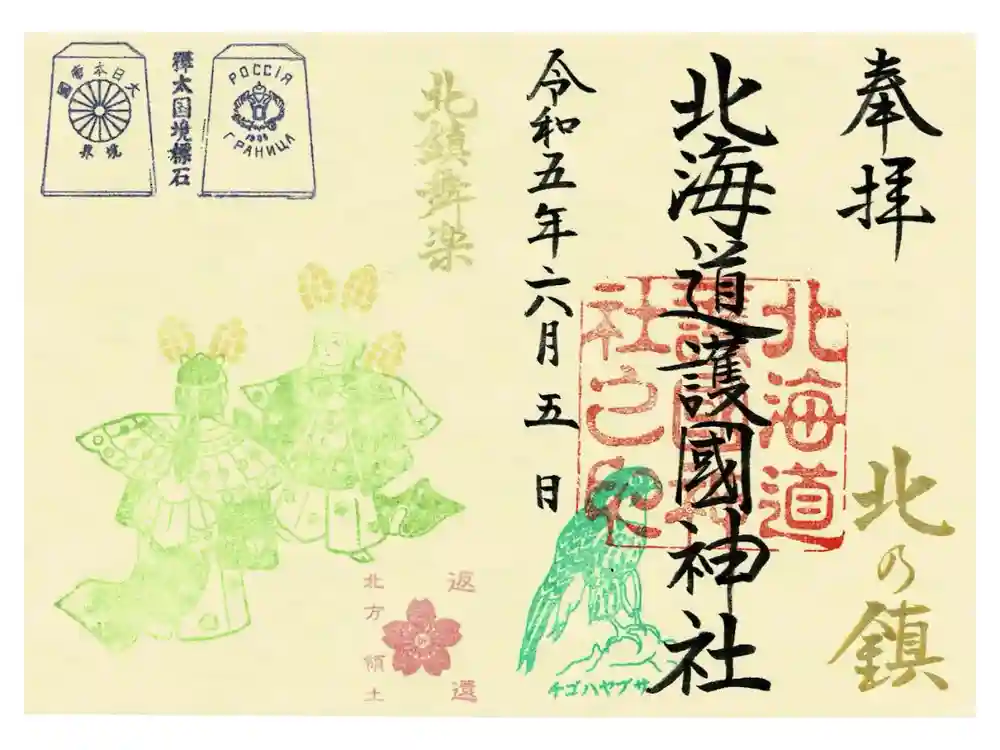 奉拝
北の鎮
北海道護國神社
北海道
護國神
社之印
令和五年六月五日
チゴハヤブサ
北鎮舞楽
返還
北方領土
РОССІЯ
1906
ГРАНИЦА
樺太国境標石
大日本帝國
境界